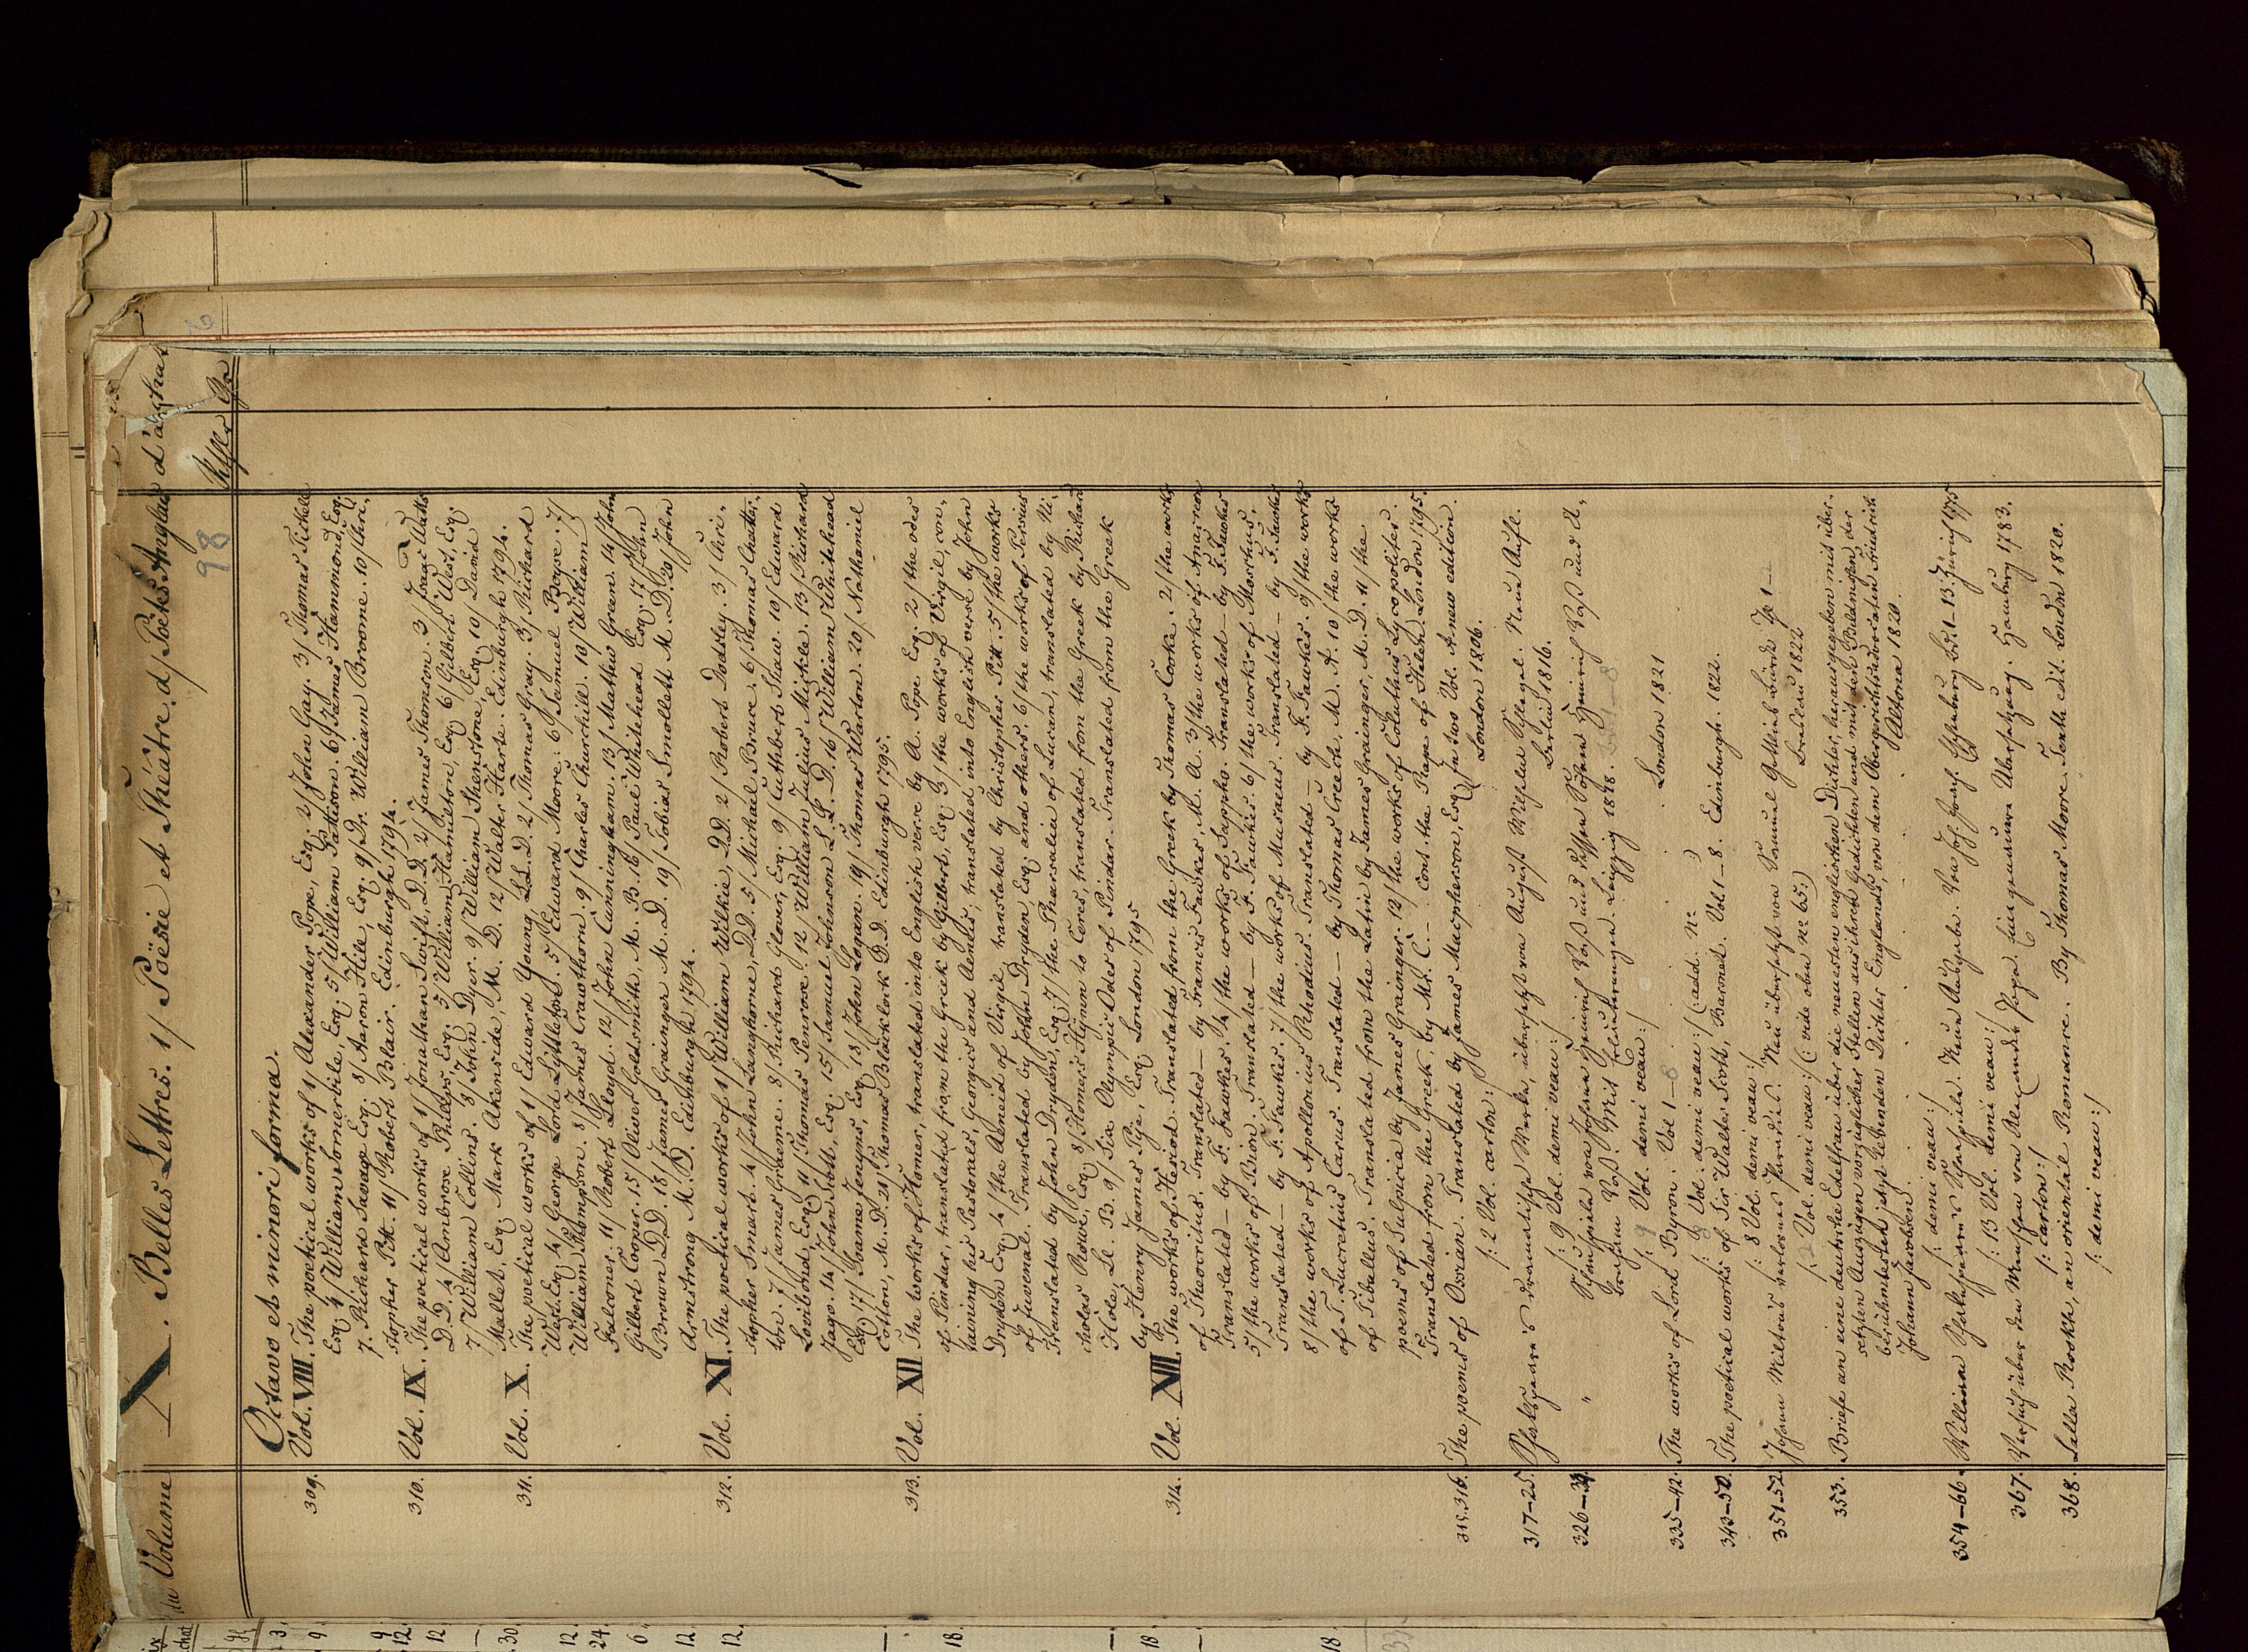 du Volume
X. Belles Lettres. 1/ Poësie et Théâtre. d/ Poëtes Anglais d'
98
Octavo et minori forma.
309. Vol. VIII. The poetical works of 1/ Alexander Pope, Esq. 2/ John Gay. 3/ Thomas Tickell
Esq. 4/ William Somervile, Esq. 5/ William Pattison. 6/ James Hammond, Esq.
7. Richard Savage Esq. 8/ Aaron Hill, Esq. 9/ Dr. William Broome. 10/ Chri-
stopher Pitt. 11/ Robert Blair. Edinburgh 1794.
310. Vol. IX. The poetical works of 1/ Jonathan Swift, D.D. 2/ James Thomson. 3/ Isaac Watts
D.D. 4/ Ambrose Philips Esq. 5/ William Hamilton, Esq. 6/ Gilbert West, Esq.
7/ William Collins. 8/ John Dyer. 9/ William Shenstone, Esq. 10/ David
Mallet, Esq. Mark Akenside, M. D. 12/ Walter Harte. Edinburgh 1794.
311. Vol. X. The poetical works of 1/ Edward Young, LL.D. 2/ Thomas Gray. 3/ Richard
West, Esq. 4/ George Lord Lyttleton. 5/ Edward Moore. 6/ Samuel Boyse. 7/
William Thompson. 8/ James Crawthorn. 9/ Charles Churchill. 10/ William
Falconer. 11/ Robert Lloyd. 12/ John Cunningham. 13/ Mathew Green. 14/ John
Gilbert Cooper. 15/ Oliver Goldsmith, M. B. 16/ Paul Whitehead Esq. 17/ John
Brown D.D. 18/ James Grainger M. D. 19/ Tobias Smollett M. D. 20/ John
Armstrong M. D. Edinburgh 1794.
312. Vol. XI. The poetical works of 1/ William Wilkie, D.D. 2/ Robert Dodsley. 3/ Chri-
stopher Smart. 4/ John Langhorne, D.D. 5/ Michael Bruce. 6/ Thomas Chatter-
ton. 7/ James Graeme. 8/ Richard Glover, Esq. 9/ Cuthbert Shaw. 10/ Edward
Lovibond, Esq. 11/ Thomas Penrose. 12/ William Julius Mickle. 13/ Richard
Jago. 14/ John Scott, Esq. 15/ Samuel Johnson L.L.D. 16/ William Whitehead
Esq. 17/ Soame Jenyns, Esq. 18/ John Logan. 19/ Thomas Warton. 20/ Nathaniel
Cotton, M. D. 21/ Thomas Blacklock D.D. Edinburgh 1795.
313. Vol. XII The works of Homer, translated into English verse by A. Pope Esq. 2/ the odes
of Pindar, translated from the Greek by Gilbert, Esq. 3/ the works of Virgil, con-
taining his Pastorals, Georgics and Aeneis, translated into English verse by John
Dryden Esq. 4/ the Aeneid of Virgil, translated by Christopher Pitt. 5/ the works
of Juvenal. Translated by John Dryden, Esq. and others. 6/ the works of Persius
translated by John Dryden, Esq. 7/ the Pharsalia of Lucan, translated by Ni-
cholas Rowe, Esq. 8/ Homers Hymn to Ceres, translated from the Greek by Richard
Hole, LL. B. 9/ Six Olympic Odes of Pindar. Translated from the Greek
by Henry James Pye, Esq. London 1795
314. Vol. XIII. The works of Hesiod. Translated from the Greek by Thomas Cooke. 2/ the works
of Theocritus. Translated — by Francis Fawkes, M. A. 3/ the works of Anacreon
Translated — by F. Fawkes. 4/ the works of Sappho. Translated — by F. Fawkes
5/ the works of Bion. Translated — by F. Fawkes. 6/ the works of Moschus.
Translated — by F. Fawkes. 7/ the works of Musaeus. Translated — by F. Fawkes
8/ the works of Apollonius Rhodius. Translated — by F. Fawkes. 9/ the works
of T. Lucretius Carus. Translated — by Thomas Creech, M. A. 10/ the works
of Tibullus. Translated from the Latin by James Grainger, M. D. 11/ the
poems of Sulpicia by James Grainger. 12/ the works of Coluthus Lycopolites.
Translated from the Greek by Mr. C.— Cont. the Rape of Helen. London 1795.
315.316. The poems of Ossian. Translated by James Macpherson, Esq. In two Vol. A new edition.
/: 2 Vol. carton :/ London 1806.
317-25. Shakspeare's dramatische Werke, übersetzt von August Wilhelm Schlegel. Neue Aufl.
/: 9 Vol. demi veau :/ Berlin 1816.
326-34. " Schauspiele von Johann Heinrich Voß und dessen Söhnen Heinrich Voß und A-
braham Voß. Mit Erläuterungen. Leipzig 1818. 1-8
/: 9 Vol. demi veau :/
335-42. The works of Lord Byron. Vol 1-8 London 1821
/: 8 Vol. demi veau :/ (: add. No :)
343-50. The poetical works of Sir Walter Scott, Baronet. Vol 1-8. Edinburgh. 1822.
/: 8 Vol. demi veau :/
351-52. Johann Miltons verlornes Paradies. Neu übersetzt von Samuel Gottlieb Bürde Th 1-2
/: 2 Vol. demi veau :/ (: vide oben No 65:) Breslau 1822
353. Briefe an eine deutsche Edelfrau über die neuesten englischen Dichter, herausgegeben mit über-
setzten Auszügen vorzüglicher Stellen aus ihren Gedichten und mit den Bildnissen der
berühmtesten jetzt lebenden Dichter Englands, von dem Obergerichtsadvocaten Friedrich
Johann Jacobsen. Altona 1820.
/: demi veau :/
354-66. William Shakspeare's Schauspiele. Neue Ausgabe. Von Joh. Joach. Eschenburg Bd. 1-13. Zürich 1775
/: 13 Vol. demi veau :/
367. Versuch über den Menschen von Alexander Pope. Eine genauere Übersetzung. Hamburg 1783.
/: carton :/
368. Lalla Rookh, an oriental Romance. By Thomas Moore. Tenth edit. London 1820.
/: demi veau :/